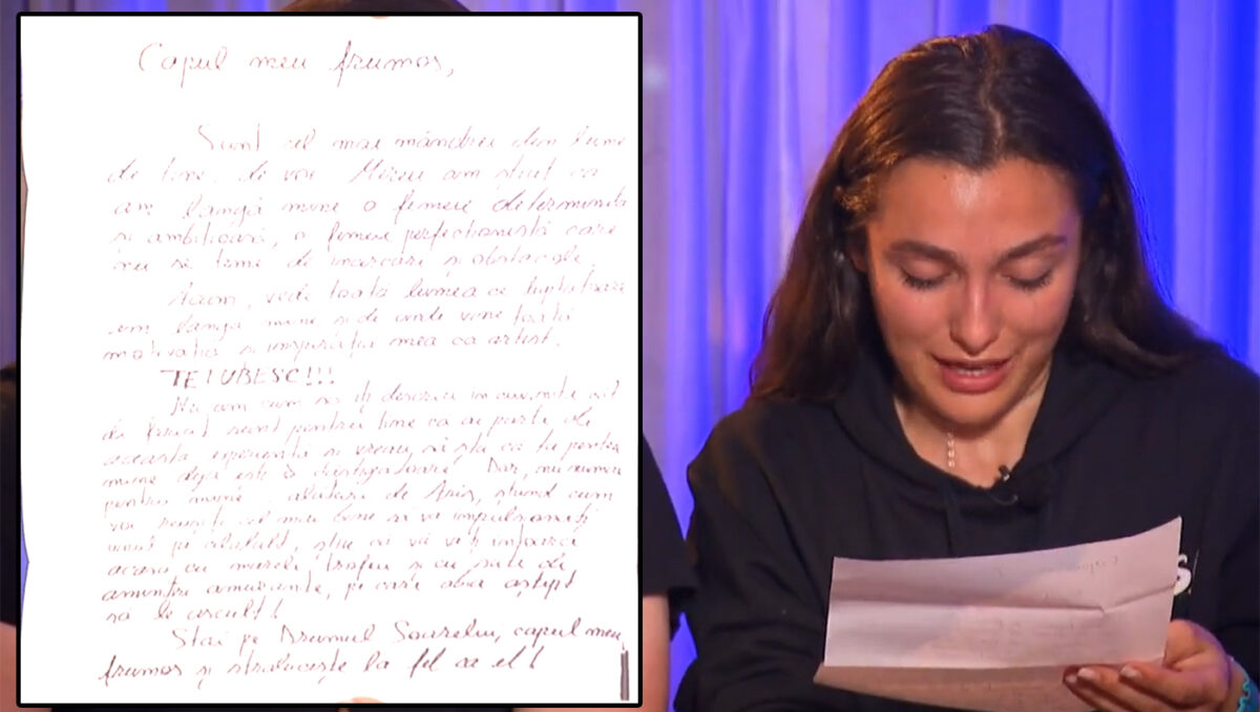 Capul meu frumos,
Sunt cel mai mândru din lume
de tine, de voi. Mereu am știut ca
am langă mine o femeie determinata
si ambitioasă, o femeie perfectionistă care
nu se teme de incercari și obstacole.
Acum, vede toata lumea ce luptatoare
am langa mine si de unde vine toată
motivația si inspirația mea ca artist.
TE IUBESC!!!
Nu am cum sa iți descriu in cuvinte cat
de fericit sunt pentru tine ca ai parte de
aceasta experienta si vreau să știi ca tu pentru
mine deja ești o castigatoare! Dar, nu numai
pentru mine. alaturi de Aris, știind cum
voi reușiți cel mai bine să vă impulsionați
unul pe celalalt, știu că vă veți intoarce
acasa cu marele trofeu si cu sute de
amintiri amuzante, pe care abia aștept
sa le ascult!
Stai pe Drumul Soarelui, capul meu
frumos și straluceste la fel ca el!
S